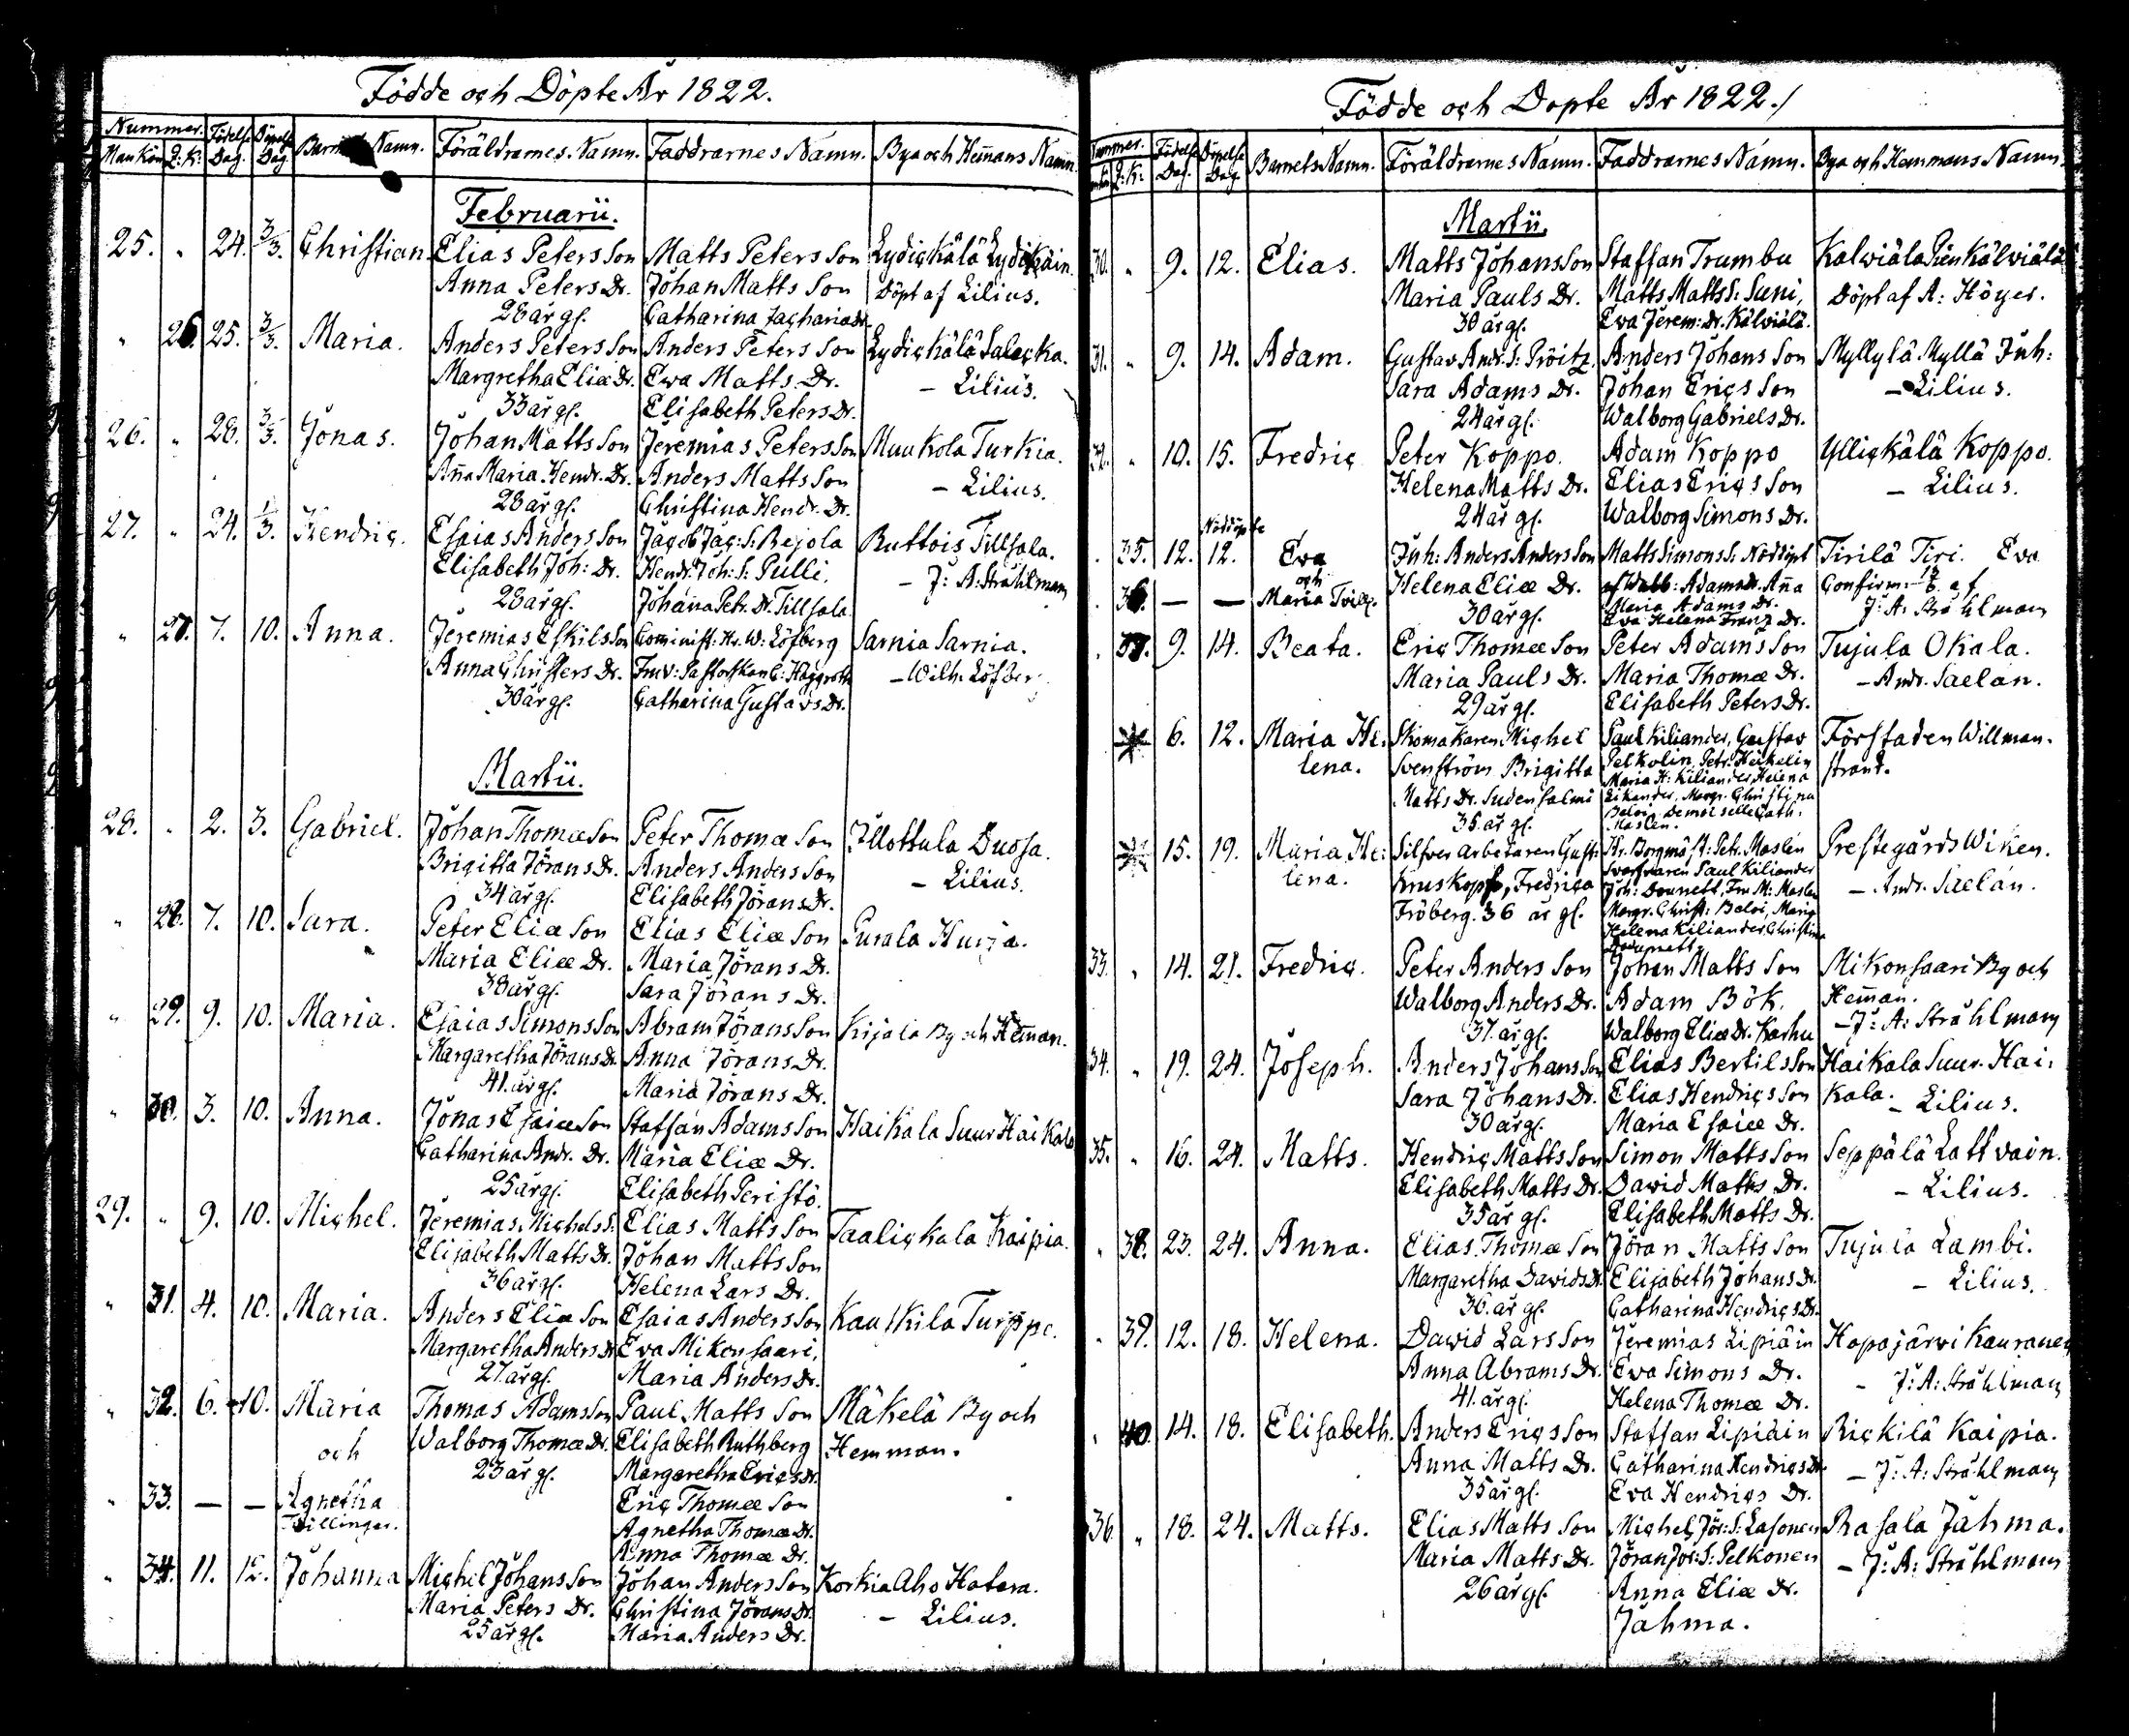 Födde och Döpte År 1822.
Nummer. Födelse Döpelse
Mankön Q: K: Dag. Dag. Namn. Föräldrarnes Namn. Faddrarnes Namn. Bya och Hem̄ans Nam̄n.
Februarii.
25. " 24. 3/3. Christian. Elias Peters Son Matts Peters Son Lydickälä Lydikäin.
Anna Peters Dr. Johan Matts Son Döpt af Lilius.
28 år gl. Catharina Zacharia Dr.
" 26. 25. 3/3. Maria. Anders Peters Son Anders Peters Son Lydickälä Salacka.
Margretha Eliæ Dr. Ewa Matts Dr. – Lilius.
33 år gl. Elisabeth Peters Dr.
26. " 28. 3/3. Jonas. Johan Matts Son Jeremias Peters Son Muukola Turkia.
An̄a Maria Hendr. Dr. Anders Matts Son – Lilius.
28 år gl. Christina Hendr. Dr.
27. " 24. 1/3. Hendric. Esaias Anders Son Jacob Jac: S: Rejola Ruttois Tillsala.
Elisabeth Joh: Dr. Hendr. Joh: S: Pulli. – J: A: Stråhlman
28 år gl. Johana Petr. Dr. Tillsala
" 27. 7. 10. Anna. Jeremias Eskils Son Cominist: Hr. W: Löfberg Sarnia Sarnia.
Anna Christers Dr. Fru v: Pastorskan C: Häggroth – Wilh. Löfber
30 år gl. Catharina Gustavs Dr.
Martii.
28. " 2. 3. Gabriel. Johan Thomæ Son Peter Thomæ Son Illottula Duosa.
Brigitta Jörans Dr. Anders Anders Son – Lilius.
34 år gl. Elisabeth Jörans Dr.
" 28. 7. 10. Sara. Peter Eliæ Son Elias Eliæ Son Purala Hurja.
Maria Eliæ Dr. Maria Jörans Dr.
38 år gl. Sara Jörans Dr.
" 29. 9. 10. Maria. Esaias Simons Son Abram Jörans Son Kirjala By och Hem̄an.
Margaretha Jörans Dr. Anna Jörans Dr.
41. år gl. Maria Jörans Dr.
" 30. 3. 10. Anna. Jonas Esaiæ Son Staffan Adams Son Haikala Suur Haikala
Catharina Andr. Dr. Maria Eliæ Dr.
25 år gl. Elisabeth Peristö.
29. " 9. 10. Michel. Jeremias Michels S: Elias Matts Son Taalickala Kaipia.
Elisabeth Matts Dr. Johan Matts Son
36 år gl. Helena Lars Dr.
" 31. 4. 10. Maria. Anders Eliæ Son Esaias Anders Son Kaukkila Turppe.
Margaretha Anders Dr. Eva Mikonsaari.
27. år gl. Maria Anders Dr.
" 32. 6. 10. Maria Thomas Adams Son Paul Matts Son Mäkelä By och
och Walborg Thomæ Dr. Elisabeth Ruthberg Hemman.
23 år gl. Margaretha Erics Dr.
" 33. — — Agnetha Eric Thomæ Son
Twillingar. Agnetha Thomæ Dr.
Anna Thomæ Dr.
" 34. 11. 12. Johanna Michel Johans Son Johan Anders Son Korkia Aho Hatara.
Maria Peters Dr. Christina Jörans Dr. – Lilius.
25 år gl. Maria Anders Dr.
Födde och Döpte År 1822./
Nummer. Födelse Döpelse
Q: K: Dag. Dag. Barnets Namn. Föräldrarnes Namn. Faddrarnes Namn. Bya och Hemmans Namn.
Martii.
30. " 9. 12. Elias. Matts Johans Son Staffan Trumbu Kalwiäla Pien Kälwiälä
Maria Pauls Dr. Matts Matts S: Suni, Döpt af A: Höyer.
30 år gl. Eva Jerem: Dr. Kälviälä.
31. " 9. 14. Adam. Gustav Andr. S: Pröitz. Anders Johans Son Myllylä Myllä Inh:
Sara Adams Dr. Johan Erics Son – Lilius.
24 år gl. Walborg Gabriels Dr.
32. " 10. 15. Fredric Peter Koppo. Adam Koppo Yllickälä Koppo.
Helena Matts Dr. Elias Erics Son – Lilius.
24 år gl. Walborg Simons Dr.
Nöddöpte
" 35. 12. 12. Eva Inh: Anders Anders Son Matts Simons S: Nöddöpt Tirilä Tiri. Eva
och Helena Eliæ Dr. af Walb: Adams Dr. An̄a Confirm: af
" 36. — — Maria Twill. 30 år gl. Maria Adams Dr. J: A: Stråhlman
Eva Helena Franz Dr.
" 37. 9. 14. Beata. Eric Thomæ Son Peter Adams Son Tujula Okala.
Maria Pauls Dr. Maria Thomæ Dr. – Andr. Saelan.
29 år gl. Elisabeth Peters Dr.
6. 12. Maria He- Skomakaren Michel Paul Kiliander, Gustav Förstaden Willman-
lena. Svenström Brigitta Pelkolin, Petr. Heikelin strand.
Matts Dr. Sudensalmi Maria H: Kiliander, Helena
35. år gl. Likander, Margr. Christina
Beloi, Demoiselle Cath:
Maslen.
15. 19. Maria He: Silfver arbetaren Gust: Hr. Borgmäst: Petr. Maslén Prestegårds Wiken.
lena. Kruskopf, Fredrica Svarfvaren Paul Kiliander – Andr. Saelan.
Fröberg. 36 år gl. Joh: Dounett, Fru M: Maslen
Margr. Christ: Beloi, Maria
Helena Kiliander, Christina
Dounett.
33. " 14. 21. Fredric. Peter Anders Son Johan Matts Son Mikonsaari By och
Walborg Anders Dr. Adam Bök. Hem̄an.
37. år gl. Walborg Eliæ Dr. Karhu – J: A: Stråhlman
34. " 19. 24. Joseph. Anders Johans Son Elias Bertils Son Haikala Suur-Hai-
Sara Johans Dr. Elias Hendrics Son kala. – Lilius.
30 år gl. Maria Esaiæ Dr.
35. " 16. 24. Matts. Hendric Matts Son Simon Matts Son Seppälä Lattvain.
Elisabeth Matts Dr. Dawid Matts Dr. – Lilius.
35 år gl. Elisabeth Matts Dr.
" 38. 23. 24. Anna. Elias Thomæ Son Jöran Matts Son Tujula Lambi.
Margaretha Davids Dr. Elisabeth Johans Dr. – Lilius.
36. år gl. Catharina Hendrics Dr.
" 39. 12. 18. Helena. Dawid Lars Son Jeremias Lipiäin Hapajärvi Kauranen
Anna Abrams Dr. Eva Simons Dr. – J: A: Stråhlman
41. år gl. Helena Thomæ Dr.
" 40. 14. 18. Elisabeth. Anders Erics Son Staffan Lipiäin Rickilä Kaipia.
Anna Matts Dr. Catharina Hendrics Dr. – J: A: Stråhlman
35 år gl. Eva Hendrics Dr.
36. " 18. 24. Matts. Elias Matts Son Michel Jör: S: Lasonen Rasala Jahma.
Maria Matts Dr. Jöran Jos: S: Pelkonen – J: A: Stråhlman
26 år gl. Anna Eliæ Dr.
Jahma.